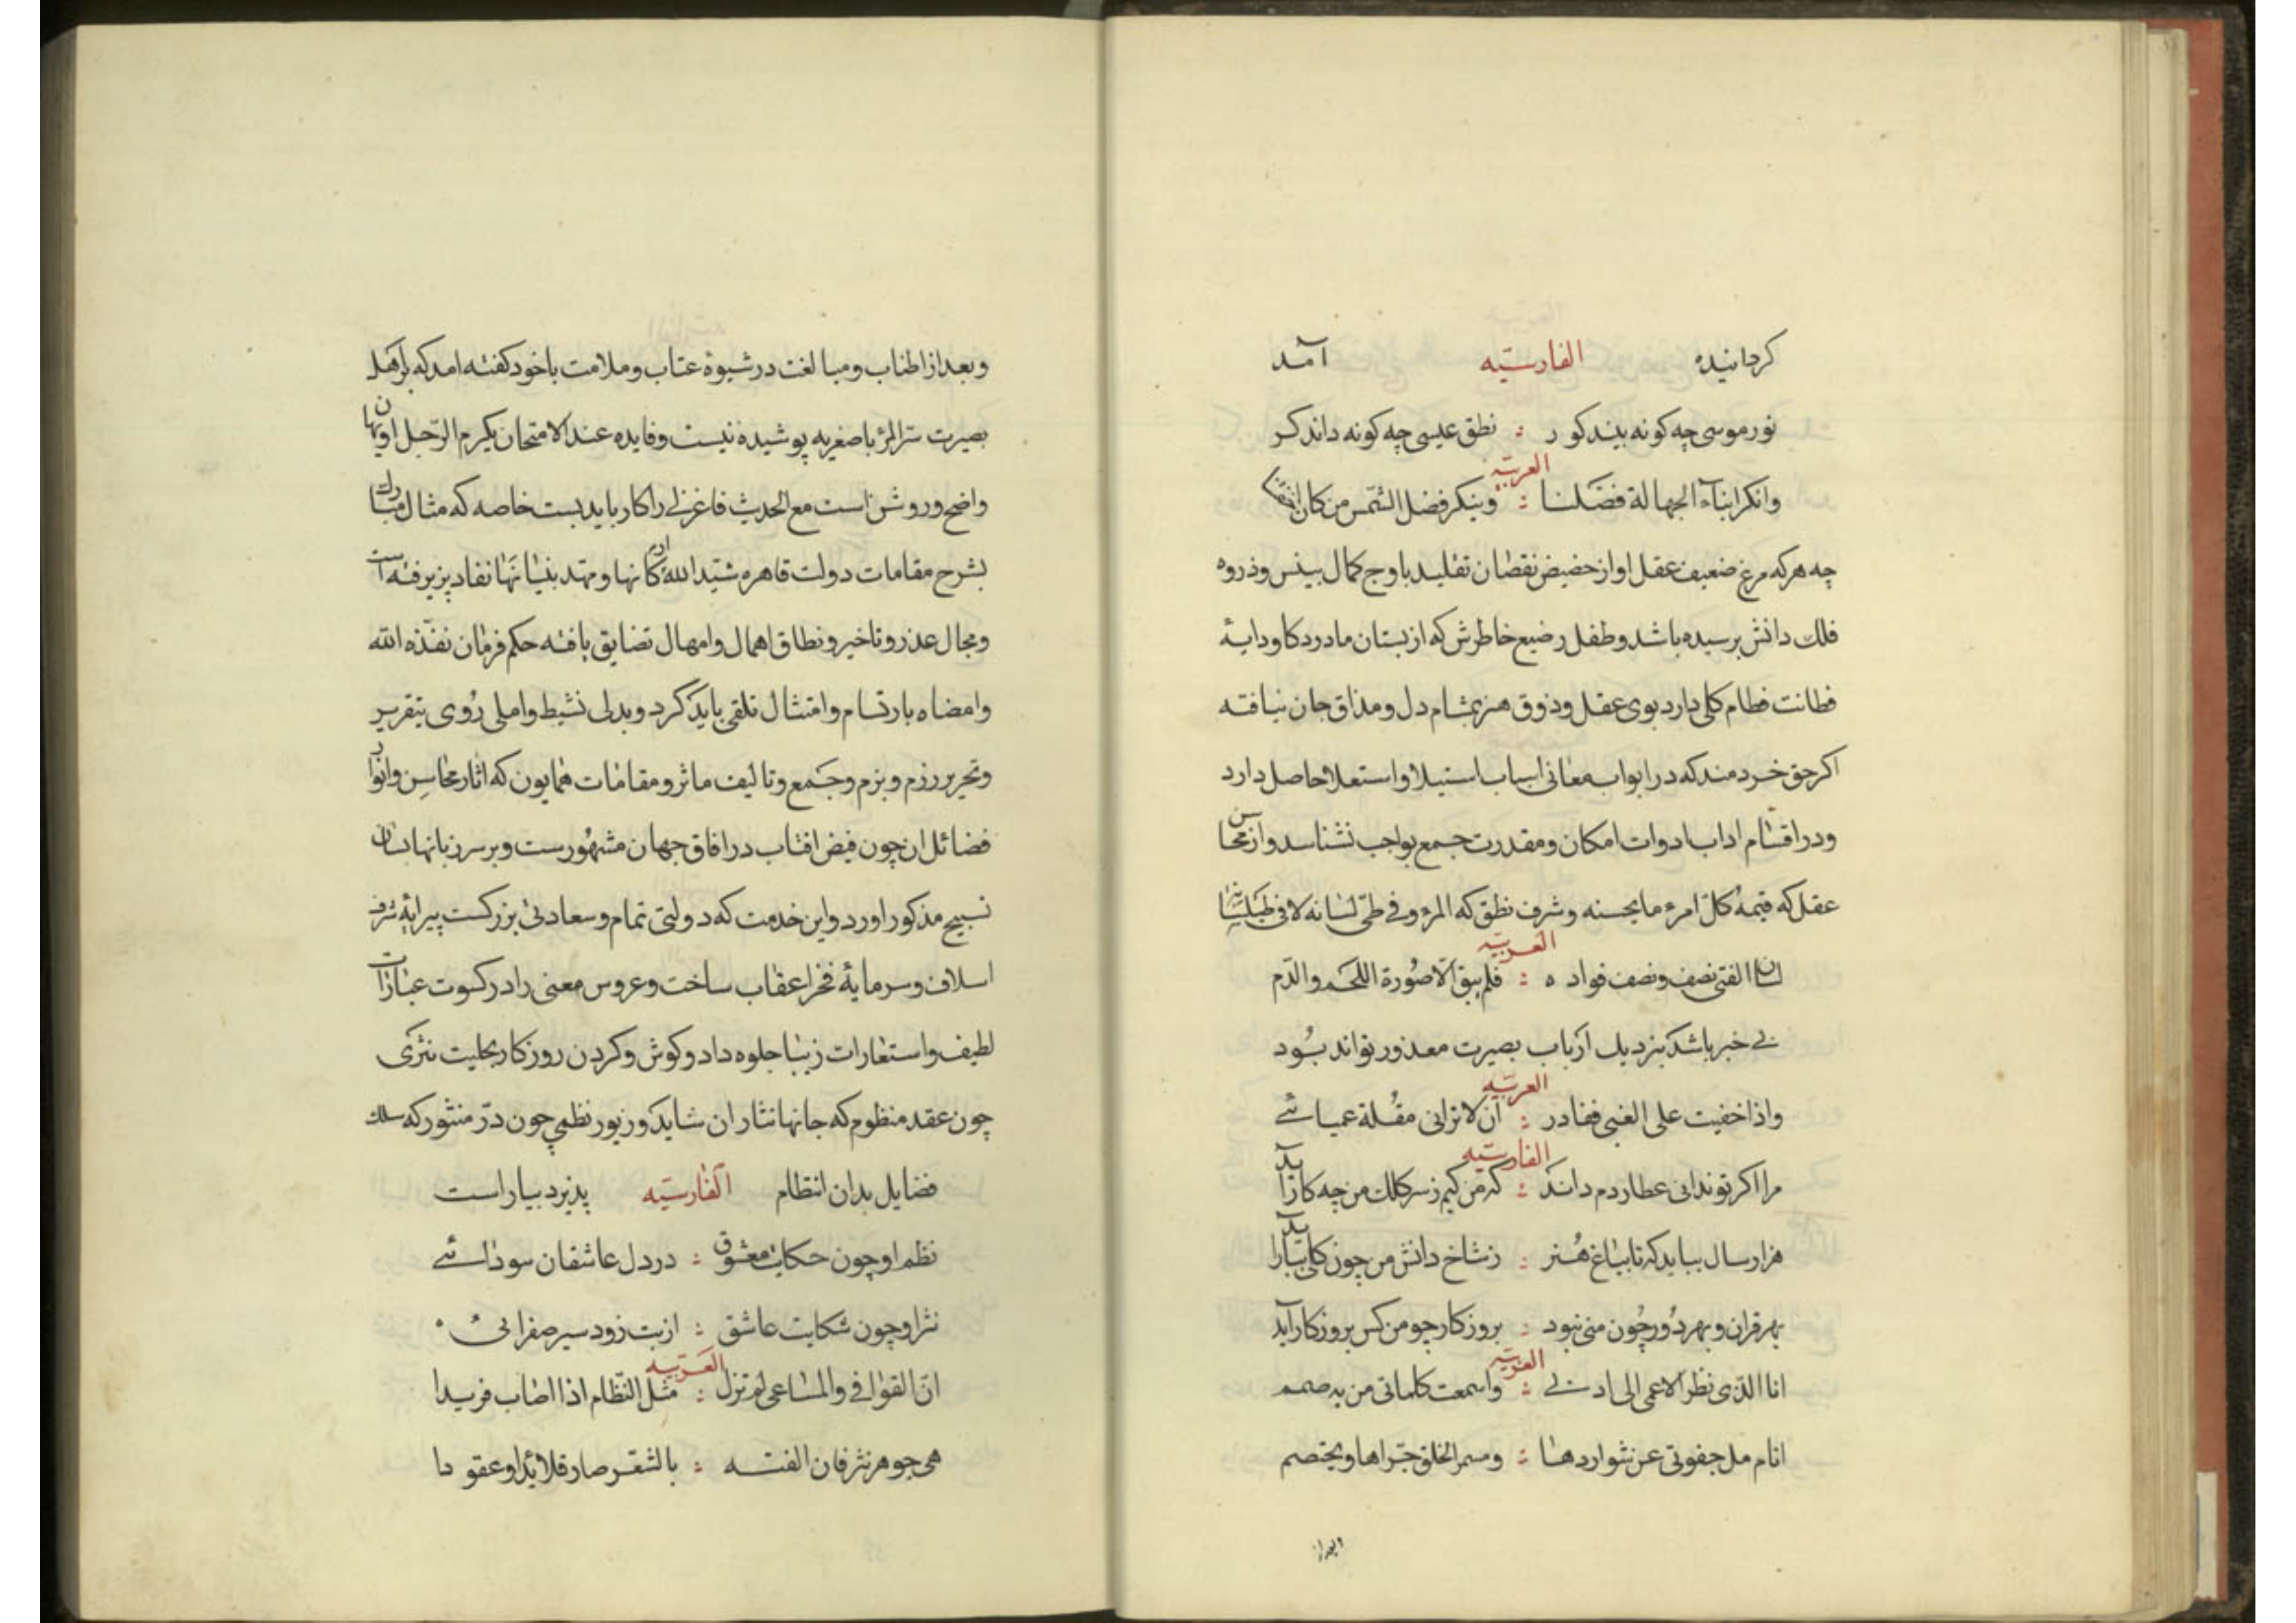 کردانیده الفارسیّه آمد
نور موسی چه کونه بیند کور : نطق عیسی چه کونه داند کر
العربیّه
وانکر ابناء الجهالة فضلنا : وینکر فضل الشمس من کان
چه هرکه مرغ ضعیف عقل او از حضیض نقصان تقلید باوج کمال بینش وذروه
فلك دانش برسیده باشد وطفل رضیع خاطرش که از بستان مادر ذکا ودایهٔ
فطانت فطام کلی دارد بوی عقل وذوق هنر بمشام دل ومذاق جان نیافته
اکر حق خردمند که در ابواب معانی اسباب استیلا واستعلا حاصل دارد
ودر اقسام اداب ادوات امکان ومقدرت جمع بواجب نشناسد واز محاسن
عقل که قیمة کلّ امرء ما یحسنه وشرف نطق که المرء فی طیّ لسانه لا فی طیلسانه
العربیّه
لسان الفتی نصف ونصف فواده : فلم یبق الّا صورة اللحم والدّم
بی خبر باشد بنزدیك ارباب بصیرت معذور تواند بود
العربیّه
واذا خفیت علی الغبی فعاذر : ان لا ترانی مقلة عمیائی
الفارسیّه
مرا اکر تو ندانی عطاردم داند : که من کیم ز سر کلك من چه کار آید
هزار سال بباید که تا بباغ هنر : ز شاخ دانش من چون کلی ببار آید
بهر قران وبهر دور چون منی نبود : بروزکار چو من کس بروزکار آید
العربیّه
انا الذی نظر الاعمی الی ادبی : واسمعت کلماتی من به صمم
انام مل جفونی عن شواردها : وسهر الخلق جرّاها ویختصم
وبعد از
وبعد از اطناب ومبالغت در شیوهٔ عتاب وملامت باخود کفته امد که بر اهل
بصیرت سرّ المرء باصغریه پوشیده نیست وفایده عند الامتحان یکرم الرجل او یهان
واضح وروشن است مع الحدیث فاغزلی را کار باید بست خاصه که مثال مبارك
بشرح مقامات دولت قاهره شیّد الله ارکانها ومهد بنیانها نفاد پزیرفته است
ومجال عذر وتاخیر ونطاق اهمال وامهال تضایق یافته حکم فرمان نفّذه الله
وامضاه بارتسام وامتثال تلقی باید کرد وبدلی نشیط واملی روی بتقریر
وتحریر رزم وبزم وجمع وتالیف ماثر ومقامات همایون که اثار محاسن وانوار
فضائل ان چون فیض افتاب در افاق جهان مشهورست وبر سر زبانها بسان
تسبیح مذکور اورد واین خدمت که دولتی تمام وسعادتی بزرکست پیرایهٔ شرف
اسلاف وسرمایهٔ فخر اعقاب ساخت وعروس معنی را در کسوت عبارات
لطیف واستعارات زیبا جلوه داد وکوش وکردن روزکار بحلیت نثری
چون عقد منظوم که جانها نثار ان شاید وزیور نظمی چون درّ منثور که سلك
فضایل بدان انتظام الفارسیّه پذیرد بیاراست
نظم او چون حکایت معشوق : در دل عاشقان سودائی
نثر او چون شکایت عاشق : از بت زود سیر صفرائی
العربیّه
انّ القوافی والمساعی لم تزل : مثل النّظام اذا اصاب فریدا
هی جوهر نثر فان الفته : بالشعر صار قلائدا وعقودا